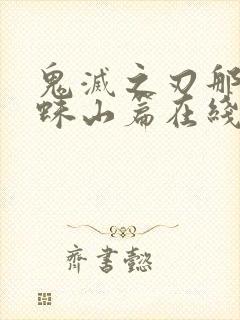 鬼滅之刃那
蛛山篇在綫
齊書懿